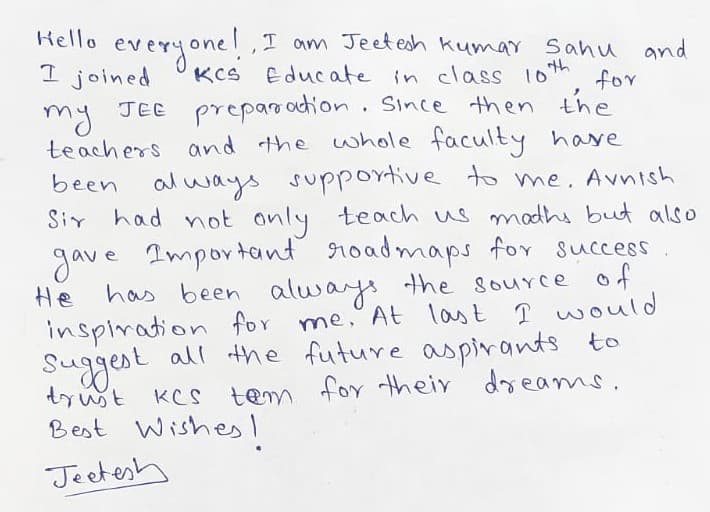 Hello everyone!, I am Jeetesh Kumar Sahu and
I joined KCS Educate in class 10th, for
my JEE preparation. Since then the
teachers and the whole faculty have
been always supportive to me. Avnish
Sir had not only teach us maths but also
gave Important roadmaps for success.
He has been always the source of
inspiration for me. At last I would
suggest all the future aspirants to
trust KCS tem for their dreams.
Best Wishes!
Jeetesh